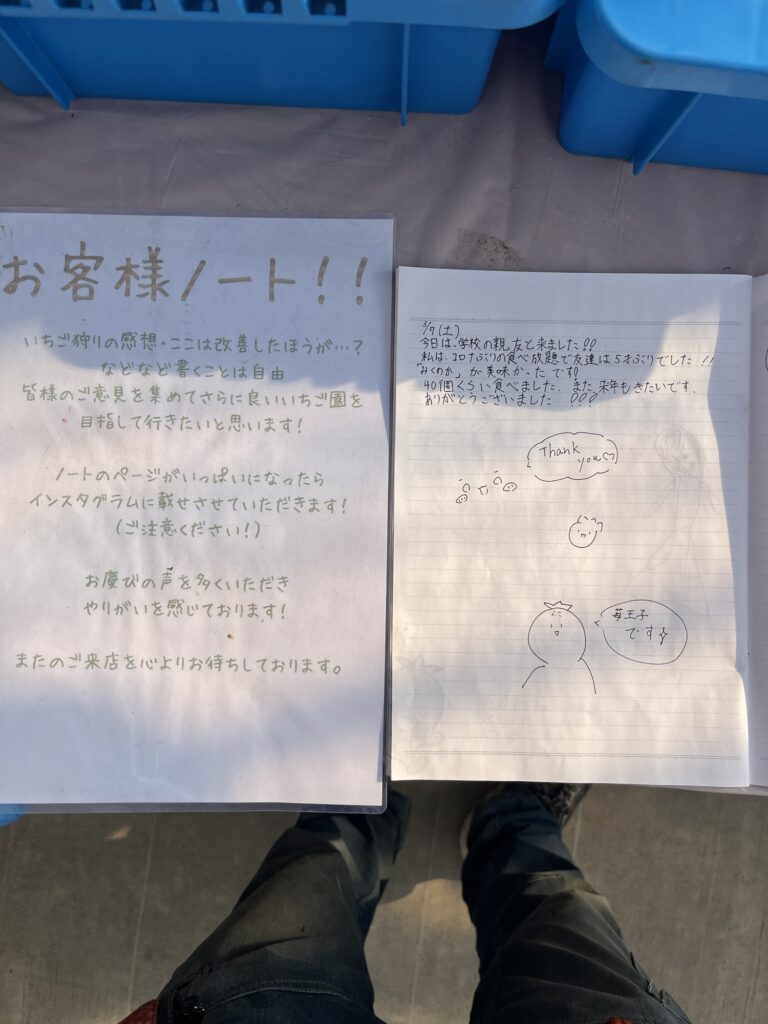 お客様ノート!!
いちご狩りの感想・ここは改善したほうが…?
などなど書くことは自由
皆様のご意見を集めてさらに良いいちご園を
目指して行きたいと思います!
ノートのページがいっぱいになったら
インスタグラムに載せさせていただきます!
(ご注意ください!)
お慶びの声を多くいただき
やりがいを感じております!
またのご来店を心よりお待ちしております。
3/7(土)
今日は、学校の親友と来ました!!
私は、コロナぶりの食べ放題で友達は5才ぶりでした!!
「みくのか」が美味かったです!
40個くらい食べました、また来年もきたいです、
ありがとうございました!!!
Thank
you
苺王子
です